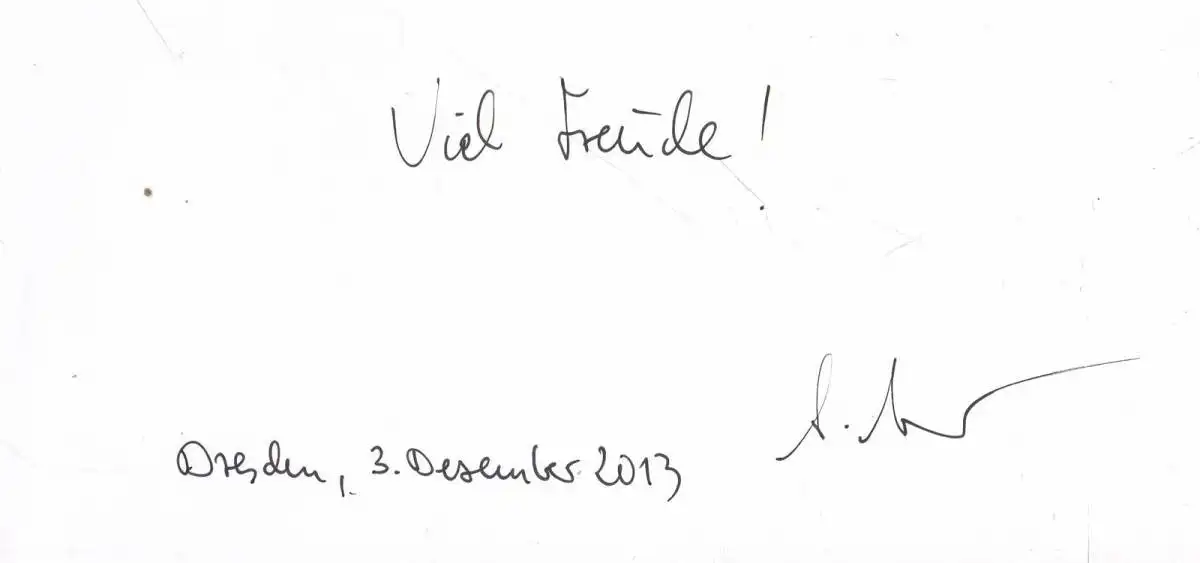 Viel Freude!
Dresden, 3. Dezember 2013